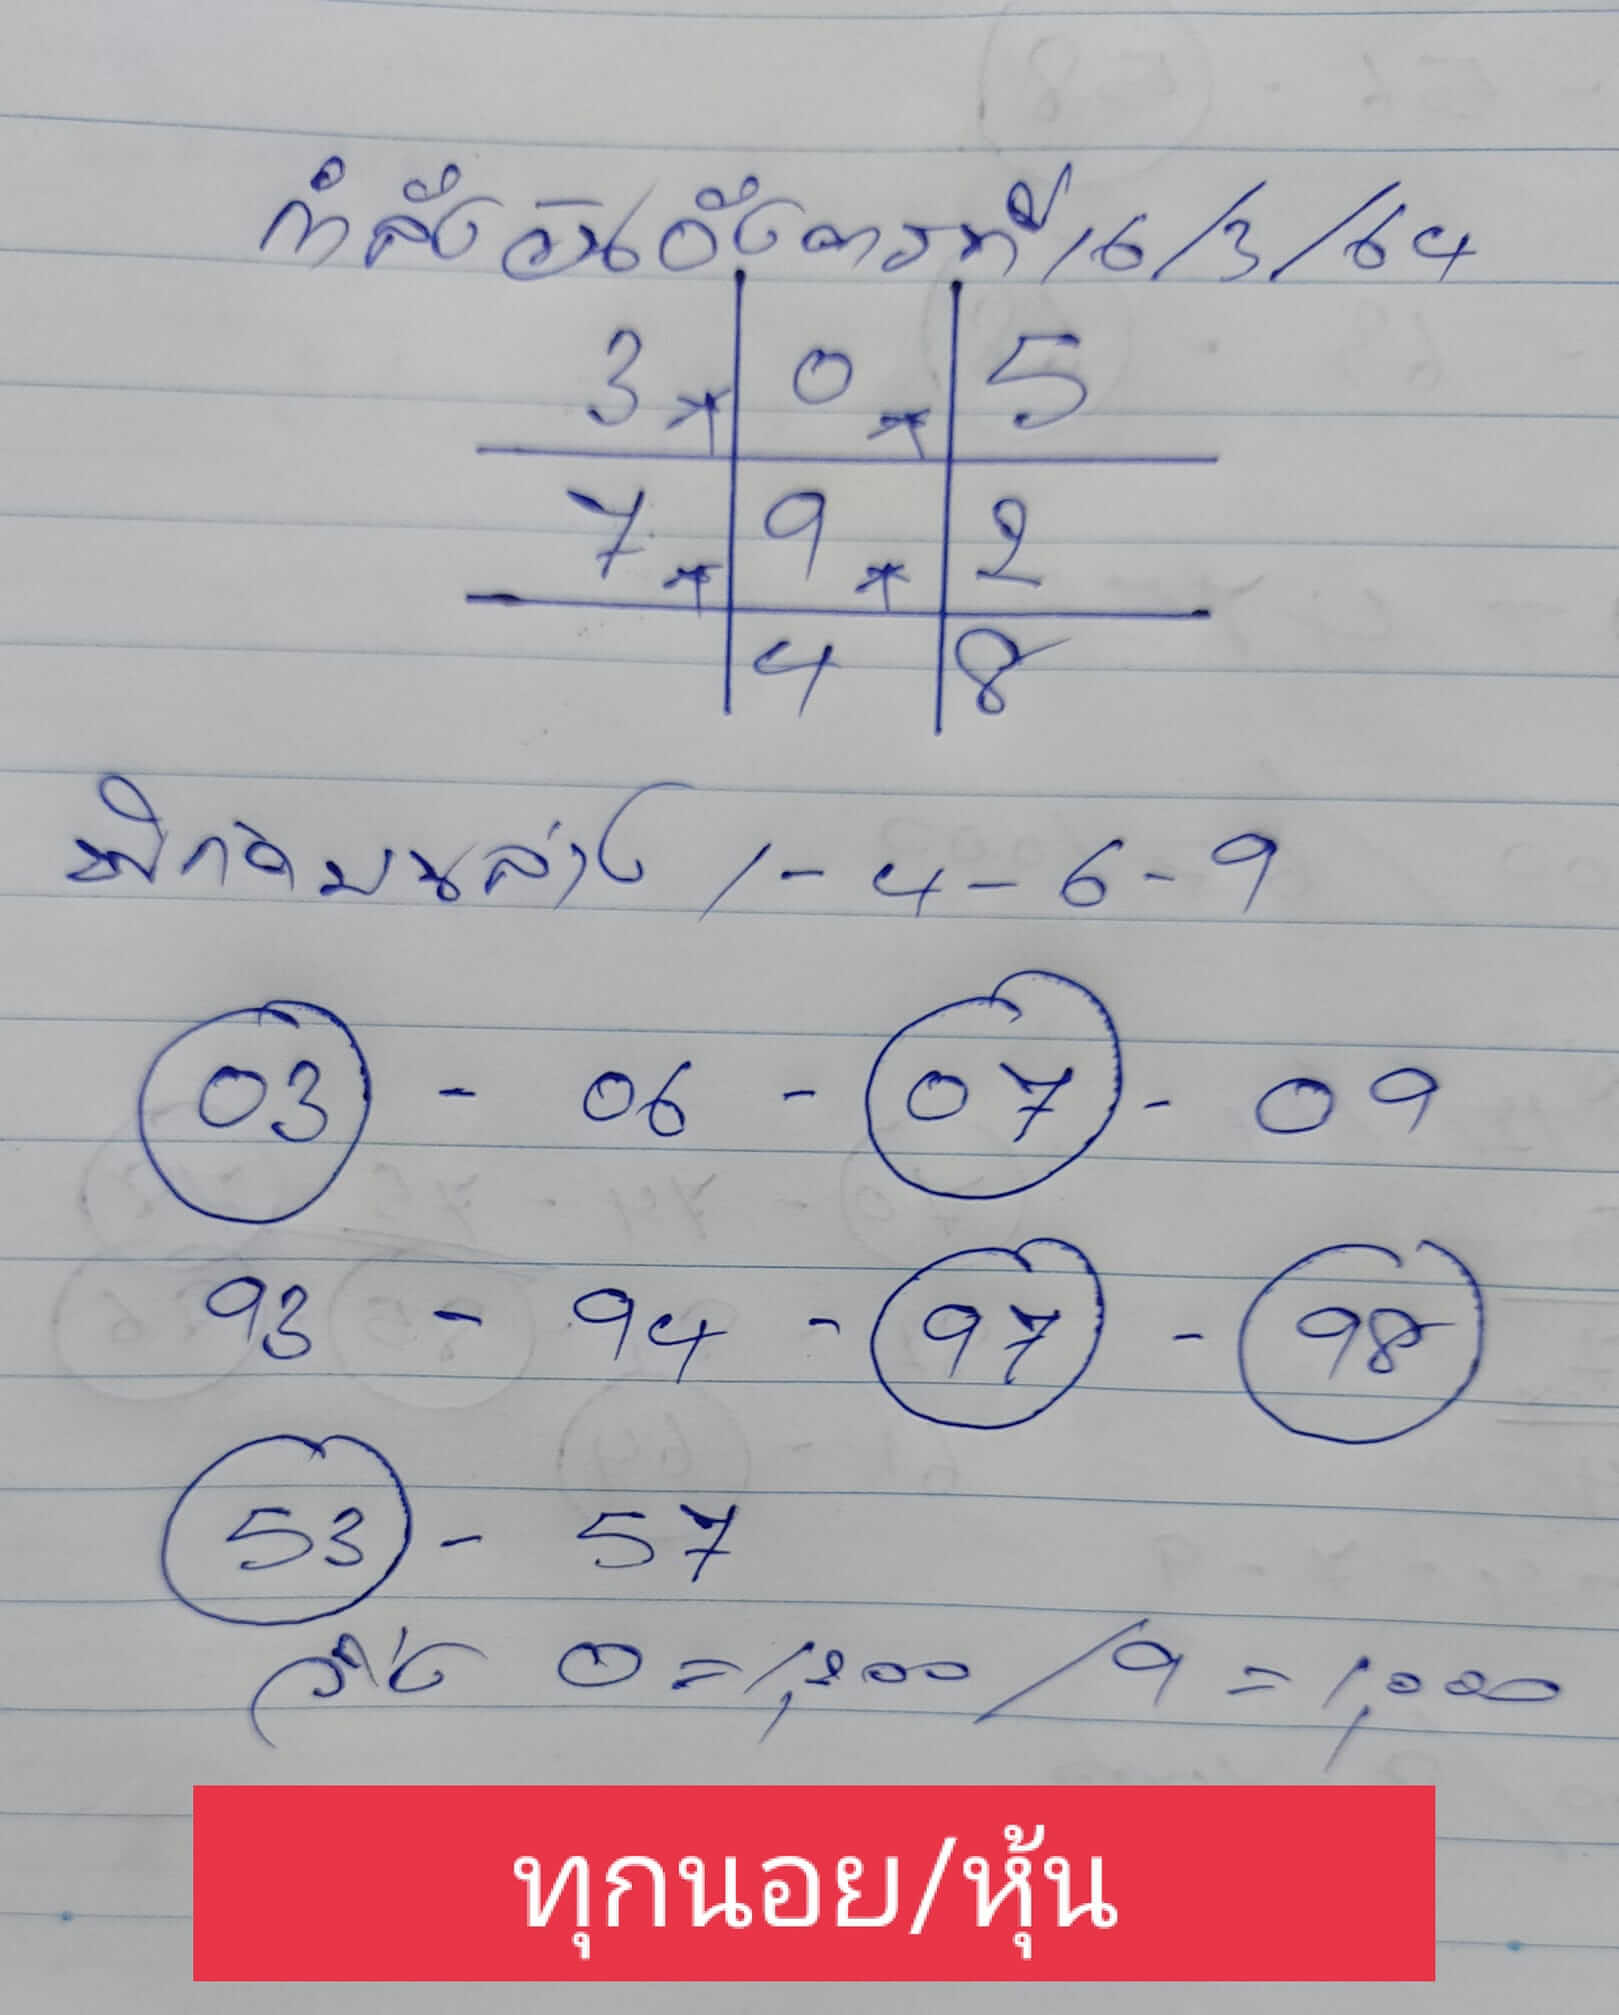 กำลังวันอังคารที่ 16/3/64
3 * 0 * 5
7 * 9 * 2
4 8
พิกัดบนล่าง 1-4-6-9
03 - 06 - 07 - 09
93 - 94 - 97 - 98
53 - 57
วิ่ง 0=1,200/9=1,000
ทุกนอย/หุ้น